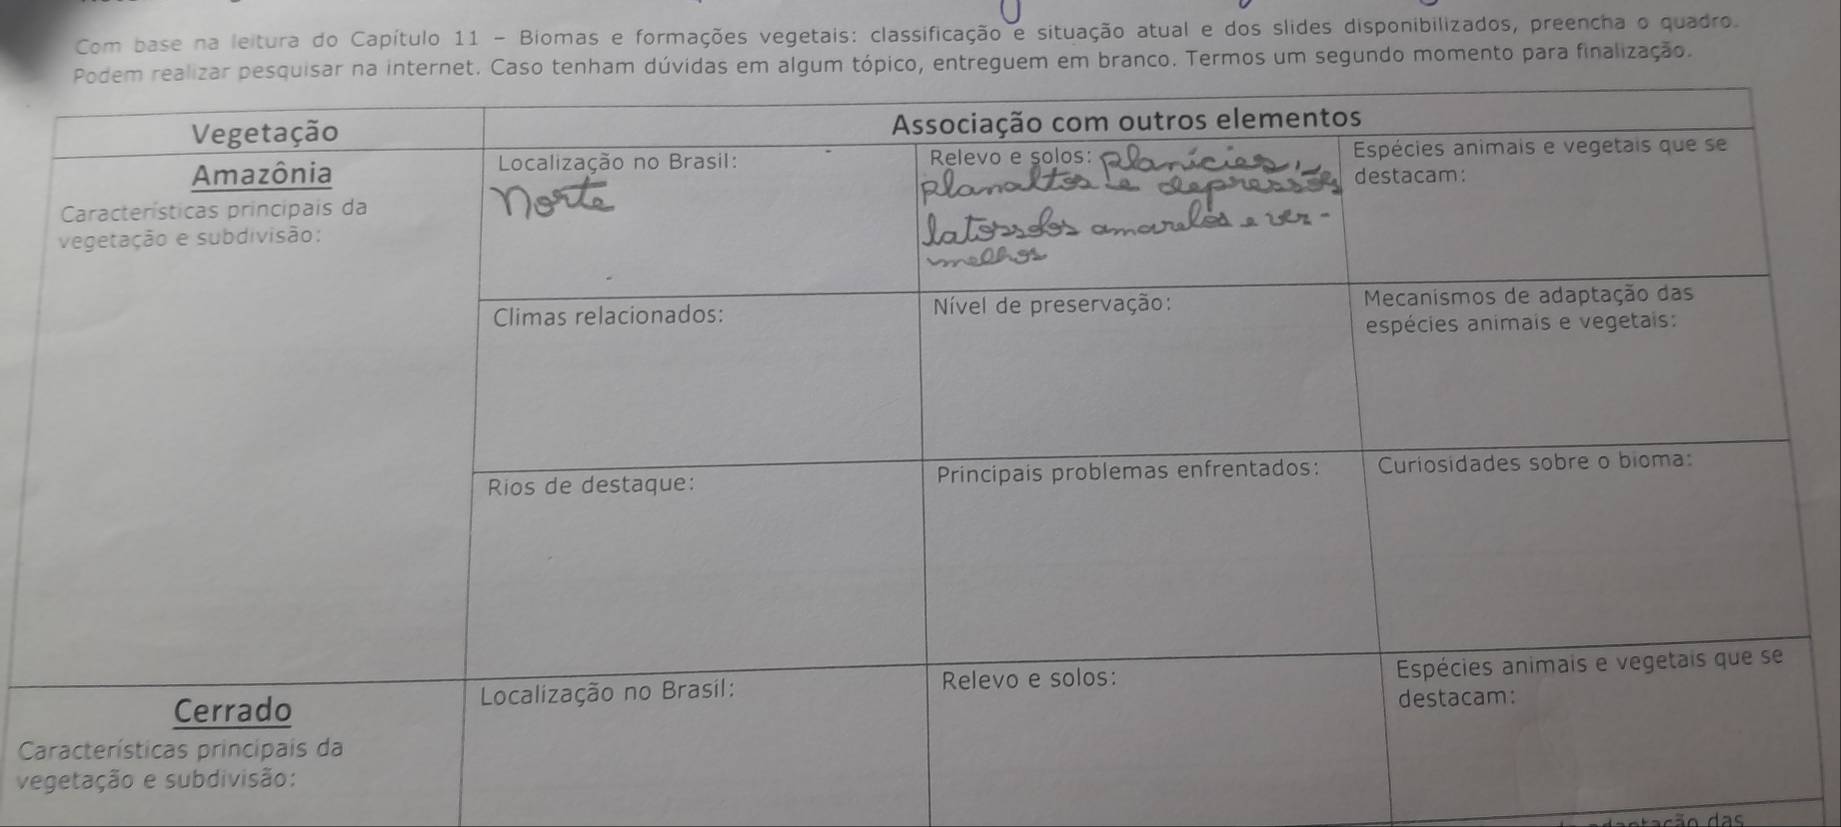 Com base na leitura do Capítulo 11 – Biomas e formações vegetais: classificação e situação atual e dos slides disponibilizados, preencha o quadro.
Podem realizar pesquisar na internet. Caso tenham dúvidas em algum tópico, entreguem em branco. Termos um segundo momento para finalização.
Vegetação
Associação com outros elementos
Amazônia
Características principais da
vegetação e subdivisão:
Localização no Brasil:
Norte
Relevo e solos: planícies,
planaltos e depressões
latossolos amarelos e ver-
melhos
Espécies animais e vegetais que se
destacam:
Climas relacionados:
Nível de preservação:
Mecanismos de adaptação das
espécies animais e vegetais:
Rios de destaque:
Principais problemas enfrentados:
Curiosidades sobre o bioma:
Cerrado
Características principais da
vegetação e subdivisão:
Localização no Brasil:
Relevo e solos:
Espécies animais e vegetais que se
destacam:
adaptação das